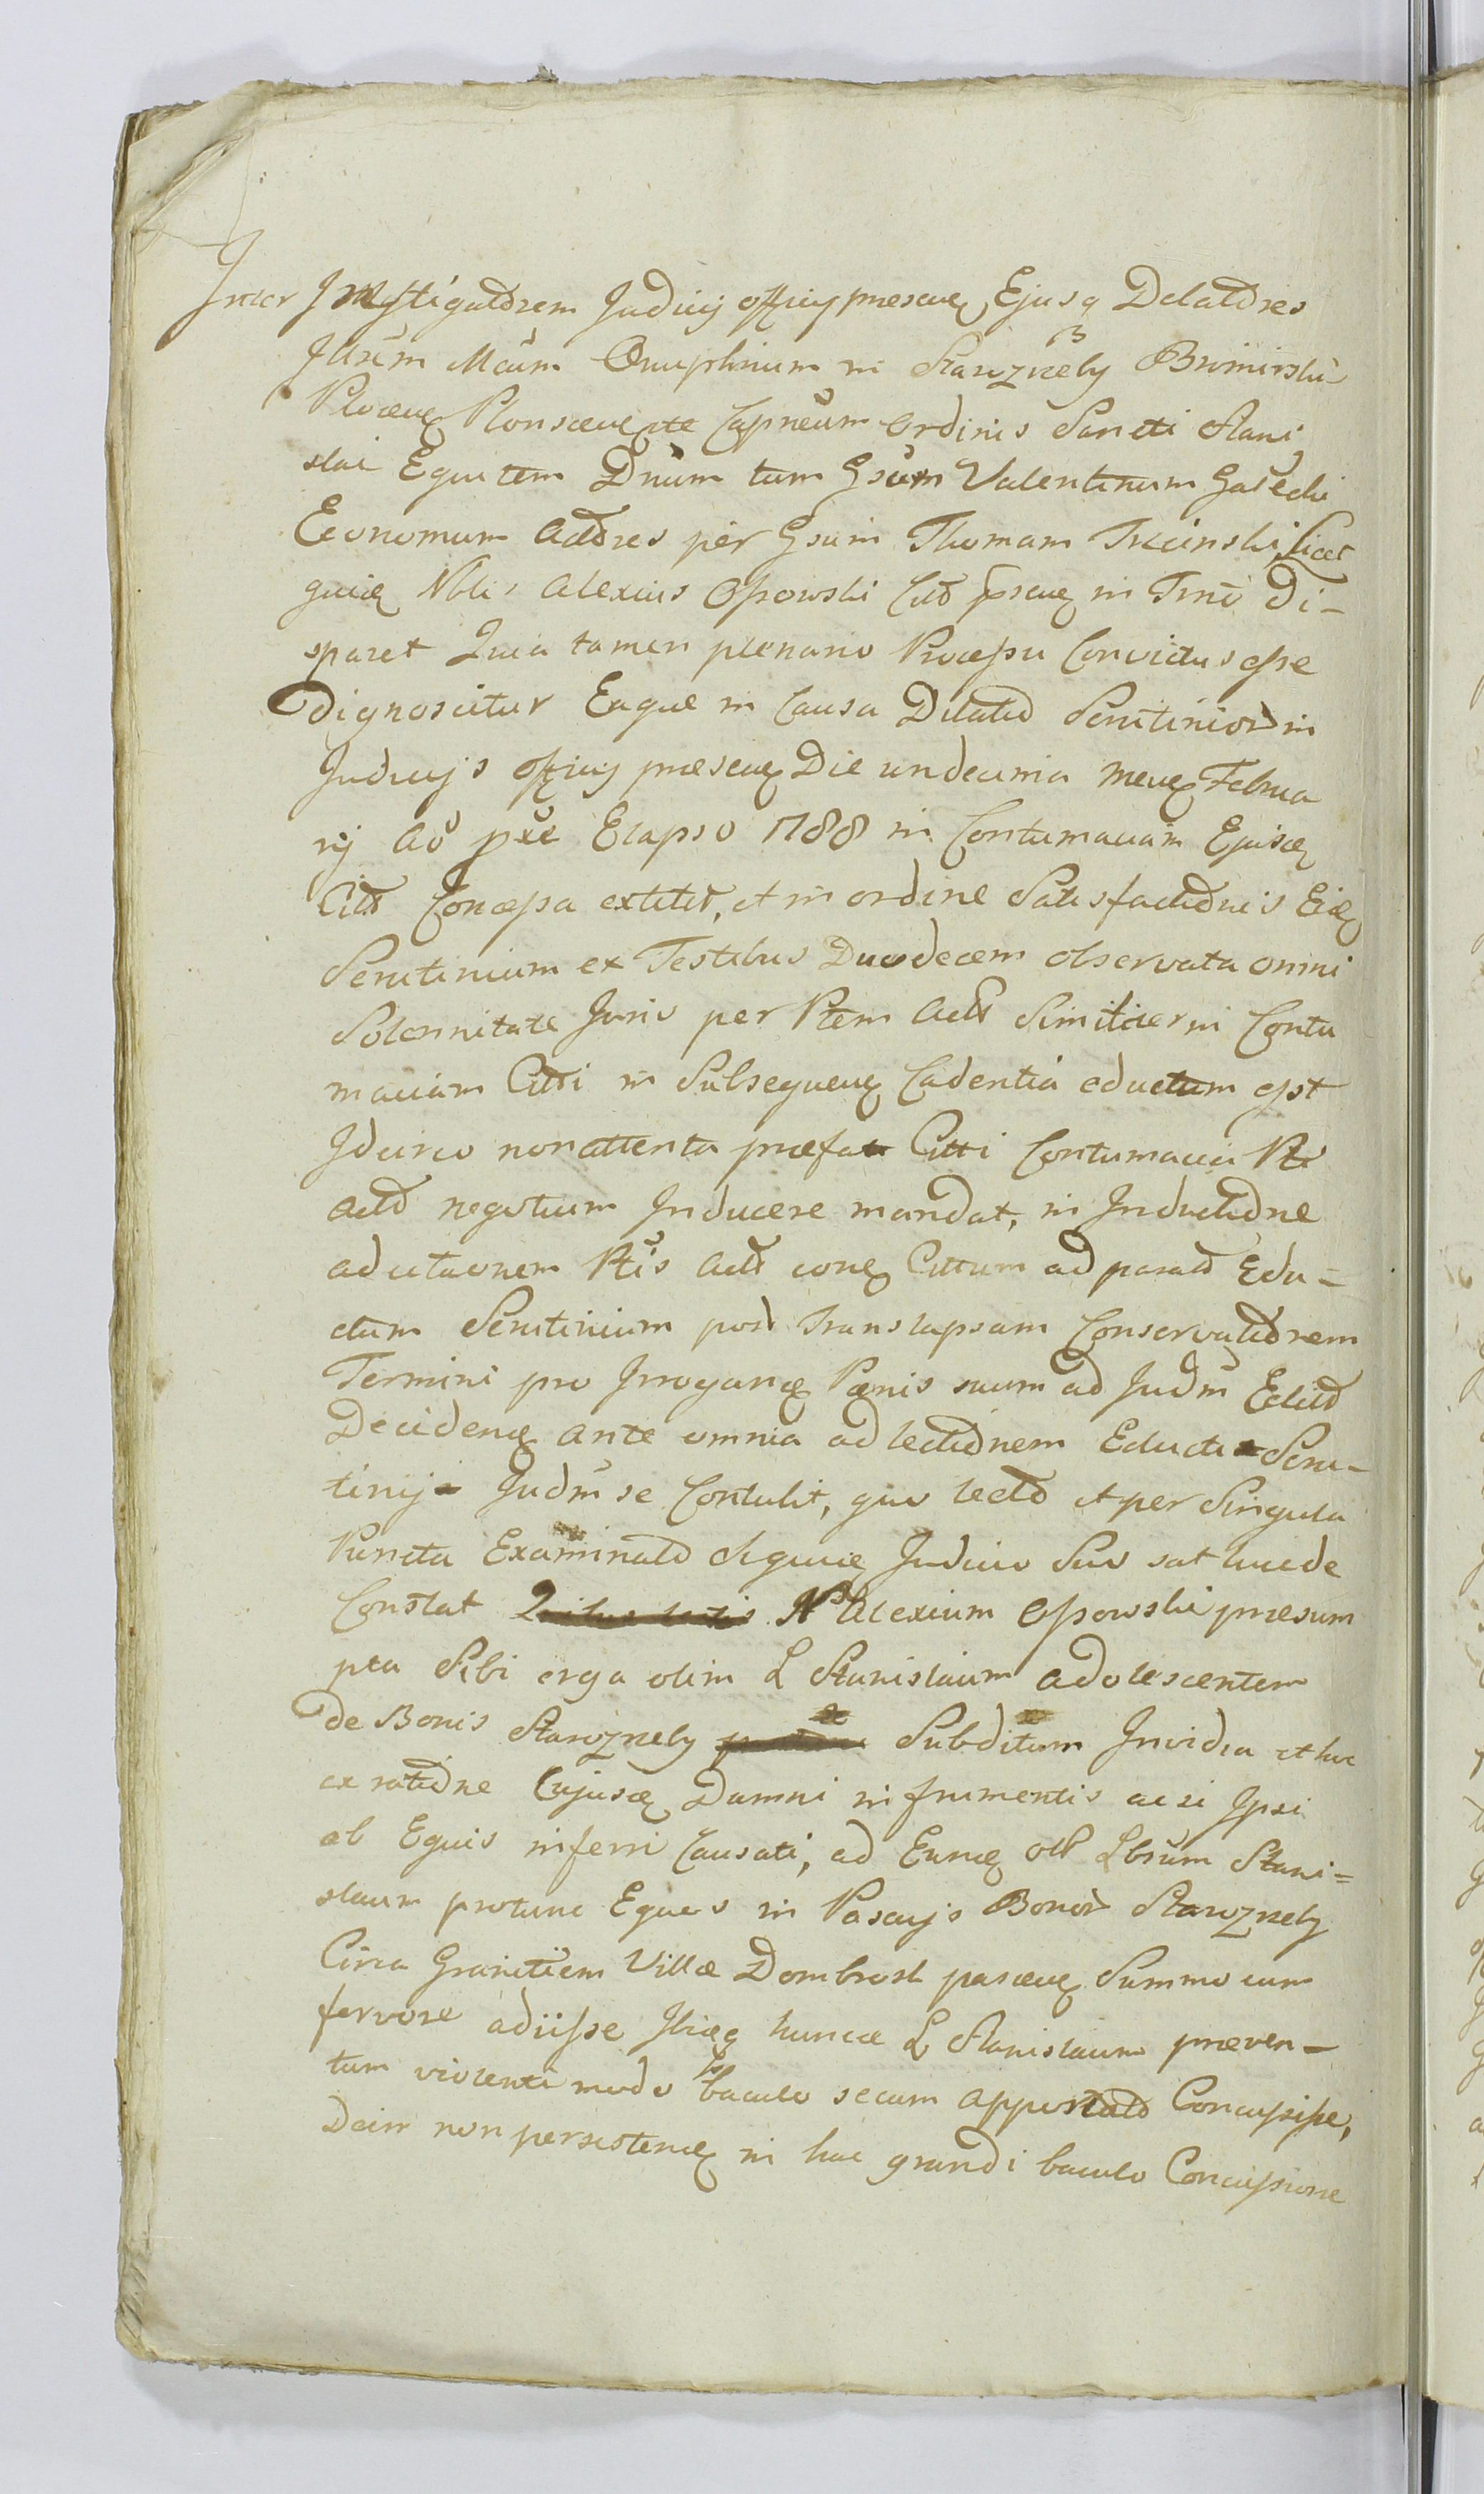 Inter Instigatorem Judicij officij præsenꝫ Ejusq Delatores
Illrem Mcum Onuphrium in Starozreby Bromirski
Plocenꝫ Plonscenꝫ te Capneum Ordinis Sancti Stani
slai Equitem Dnum tum Gsum Valentinum
Economum Actores per Gsum Thomam Trcinski Licet
quinꝫ Nblis Alexius Ossowski Citt prænꝫ in Tnno di-
sparet Quia tamen plenario Processu Convictus esse
Dignoscitur Eaque in Causa Dilatio Scrutinior in
Judicijs officij præsenꝫ Die undecima menꝫ Februa
rij Ao pxe Elapso 1788 in Contumaciam Ejusꝫ
Citti Concessa extitit, et in ordine Satisfactionis Eiꝫ
Scrutinium ex Testibus Duodecem observata omni
Solennitate Juris per Ptem Act Similiter in Contu
maciam Citti in Subsequenꝫ Cadentia eductum est
Idcirco non attenta præfa Citti Contumacia Pte
Act negotium Inducere mandat, in Inductione
ad citationem Ptis Act conꝫ Cittum ad parat Edu=
ctum Scrutinium post translapsam Conservationem
Termini pro Irrogang Pœnis suum ad Judm Edit
Decidenꝫ ante omnia ad lectionem Educti Scru-
tinij Judm se Contulit, quo lecto et per Singula
Puncta Examinato Judicio Suo sat lucide
Constat N Alexium Ossowski præsum
pta Sibi erga olim L Stanislaum adolescentem
de Bonis Starozreby Subditum Invidia et hac
ex ratione Cujusꝫ Damni in frumentis ac si Ipsi
ab Equis inferri Causati, ad Eunꝫ olt Lbsum Stani=
slaum protunc Equos in Pascujs Bonor Starozreby
Circa Granitiem Villæ Dombrosk pascenꝫ Summo cum
fervore adiisse Ibiqꝫ huncce L Stanislaum præven-
tum violenti modo baculo secum apportato Concussisse,
Dein non persistenꝫ in hac grandi baculo Concussione